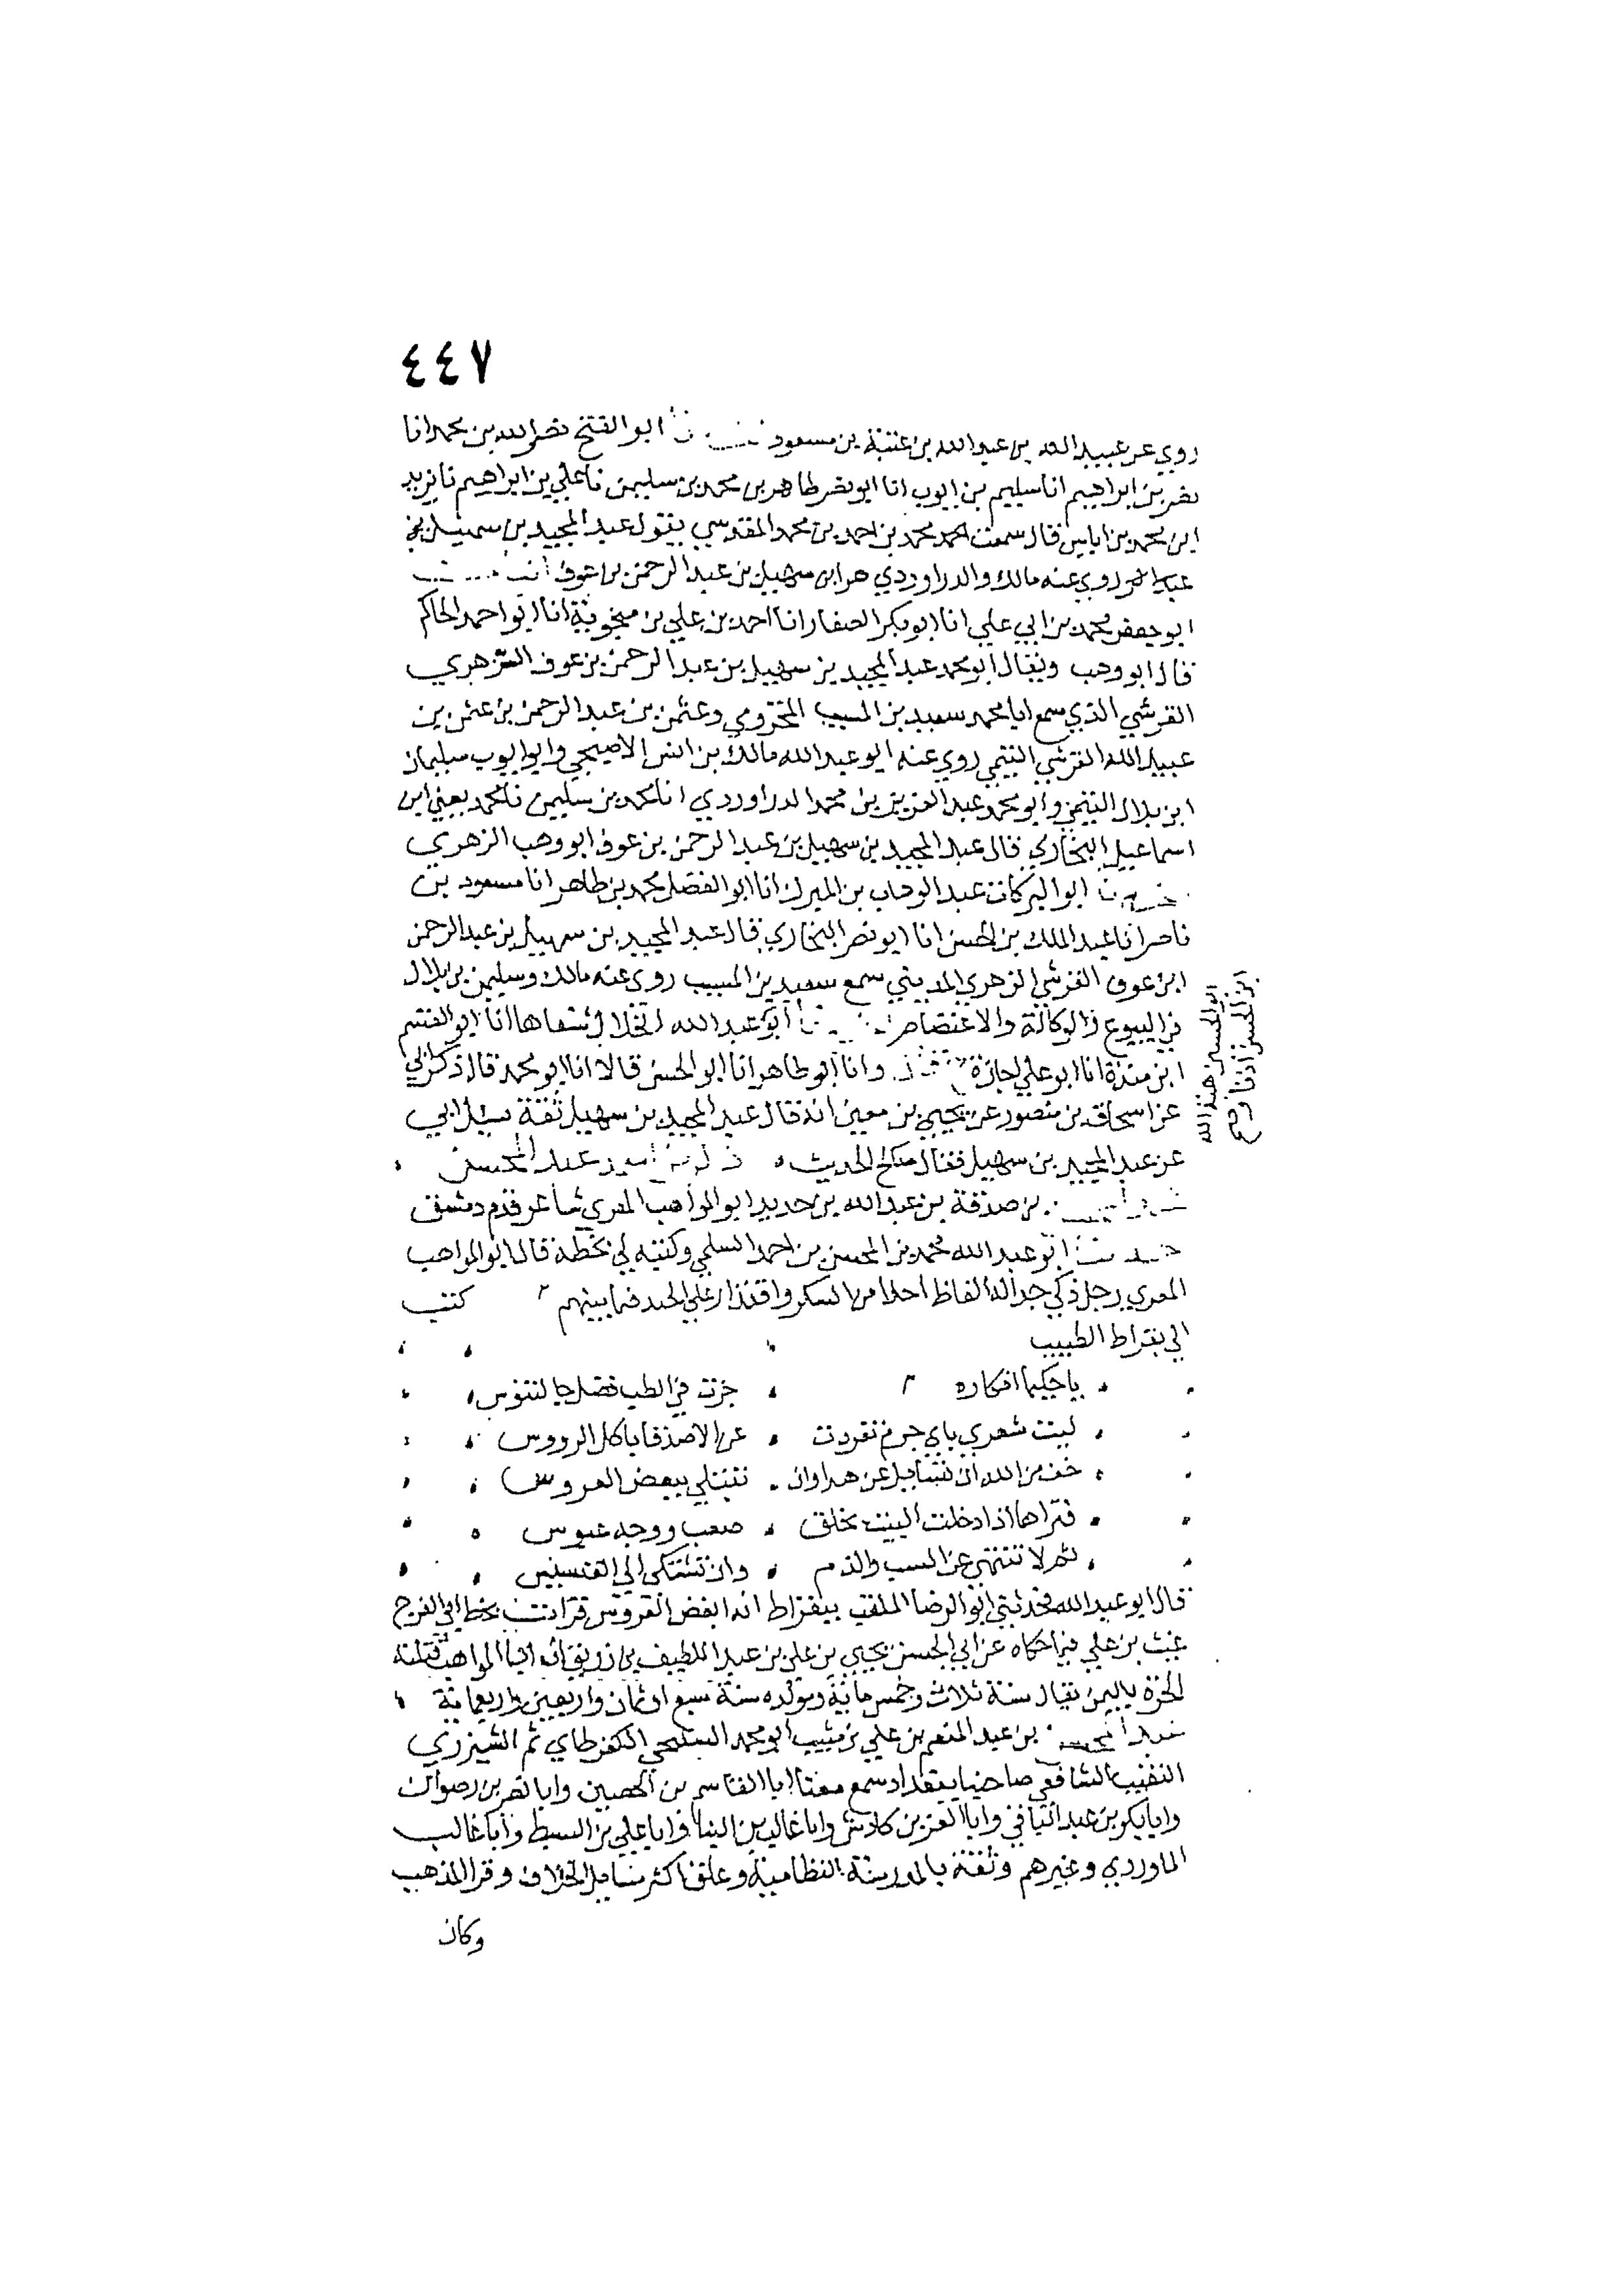 ٤٤٧
روي عن عبيد الله بن عبد الله بن عتبة بن مسعود ابو الفتح نصر الله بن محمد انا
نصر بن ابراهيم انا سليم بن ايوب انا ابو نصر طاهر بن محمد بن سليمن نا علي بن ابراهيم نا يزيد
ابن محمد بن اياس قال سمعت محمد بن احمد بن محمد المقدسي يقول عبد المجيد بن سهيل
روي عنه مالك والدراوردي هو ابن سهيل بن عبد الرحمن بن عوف
ابو جعفر محمد بن ابي علي انا ابو بكر الصفار انا احمد بن علي بن منجوية انا ابو احمد الحاكم
قال ابو وهب ويقال ابو محمد عبد المجيد بن سهيل بن عبد الرحمن بن عوف الزهري
القرشي الذي سمع ابا محمد سعيد بن المسيب المخزومي وعثمن بن عبد الرحمن بن عثمن بن
عبيد الله القرشي التيمي روي عنه ابو عبد الله مالك بن انس الاصبحي وابو ايوب سليمان
ابن بلال التيمي وابو محمد عبد العزيز بن محمد الدراوردي انا محمد بن سليمن نا محمد يعني ابن
اسماعيل البخاري قال عبد المجيد بن سهيل بن عبد الرحمن بن عوف ابو وهب الزهري
ابو البركات عبد الوهاب بن المبرك انا ابو الفضل محمد بن طاهر انا مسعود بن
ناصر انا عبد الملك بن الحسن انا ابو نصر البخاري قال عبد المجيد بن سهيل بن عبد الرحمن
ابن عوف القرشي الزهري المديني سمع سعيد بن المسيب روى عنه مالك وسليمن بن بلال
في البيوع والوكالة والاعتصام ابو عبد الله الخلال شفاها انا ابو القسم
ابن مندة انا ابو علي اجازة وانا ابو طاهر انا ابو الحسن قالا انا ابو محمد قال ذكر ابي
عن اسحاق بن منصور عن يحيى بن معين انه قال عبد المجيد بن سهيل ثقة سئل ابي
عن عبد المجيد بن سهيل فقال صالح الحديث عبد المحسن
بن صدقة بن عبد الله بن حديد ابو المواهب المعري شاعر قدم دمشق
ابو عبد الله محمد بن المحسن بن احمد السلمي وكتبه لي بخطه قال ابو المواهب
المعري رجل ذكي جدا له الفاظ احلا من السكر واقتدار علي الجد فما بينهم كتب
الي بقراط الطبيب
يا حكيما افكاره حزت في الطب فضل جالينوس
ليت شعري باي جرم تفردت عن الاصدقا باكل الرووس
خف من الله ان تسايل عن هذا وان تبتلي ببعض العروس
فتراها اذا دخلت البيت بخلق صعب ووجه عبوس
ثم لا تنتهي عن السب والذم وان تشتكي الي القسيس
قال ابو عبد الله فحدثني ابو الرضا الملقب ببقراط انه ابغض العروس قرات بخط ابي الفرج
غيث بن علي فيما حكاه عن ابي الحسن يحيى بن علي بن عبد اللطيف بن زريق ان ابا المواهب قتلته
الحرة باليمن يقال سنة ثلاث وخمس مائة ومولده سنة سبع او ثمان واربعين واربعمائة
بن عبد المنعم بن علي بن مثيب ابو محمد الكفرطابي ثم الشيزري
الفقيه الشافعي صاحبنا ببغداد سمع معنا ابا القاسم بن الحصين وابا نصر بن رضوان
وابا بكر بن عبد الباقي وابا العز بن كادش وابا غالب بن البنا وابا علي بن السبط وابا غالب
الماوردي وغيرهم وتفقه بالمدرسة النظامية وعلق اكثر مسايل الخلاف وقرا المذهب
وكان
ابو الحسين هبة الله
ابن الحسن اذنا وح